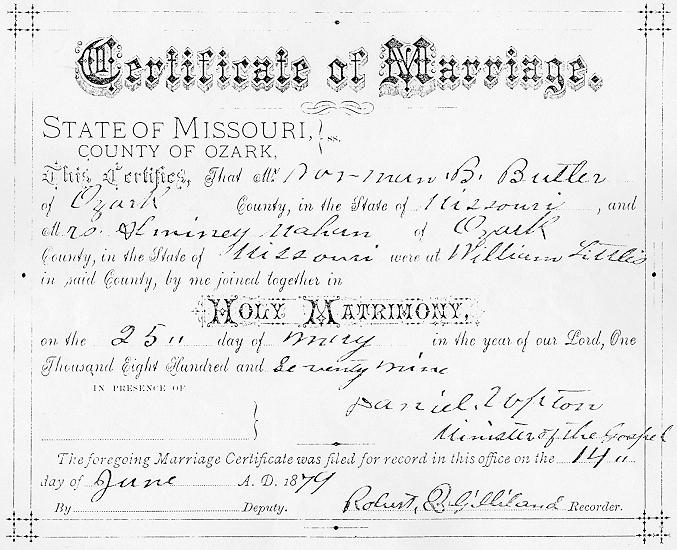 Certificate of Marriage.
STATE OF MISSOURI, } ss.
COUNTY OF OZARK,
This Certifies, That Mr Norman B. Butler
of Ozark County, in the State of Missouri, and
Mrs. Alminey Mahan of Ozark
County, in the State of Missouri were at William Little's
in said County, by me joined together in
HOLY MATRIMONY,
on the 25" day of May in the year of our Lord, One
Thousand Eight Hundred and Seventy nine
IN PRESENCE OF
Daniel Upton
Minister of the Gospel
The foregoing Marriage Certificate was filed for record in this office on the 14"
day of June A. D. 1879
By Deputy. Robert Q. Gilliland Recorder.